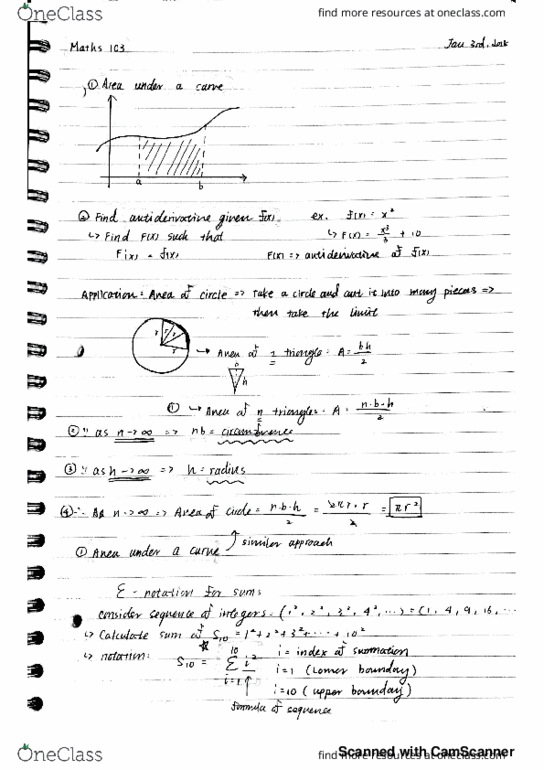 OneClass
find more resources at oneclass.com
Maths 103
Jan 3rd, 2018
① Area under a curve
a b
② Find antiderivative given f(x). ex. f(x) = x²
↳ Find F(x) such that ↳ F(x) = x³/3 + 10
F(x) = f(x) F(x) => antiderivative of f(x)
Application: Area of circle => Take a circle and cut it into many pieces =>
then take the limit
r r r r
↳ Area of 1 triangle: A = bh/2
b
h
① ↳ Area of n triangles: A = n·b·h/2
② ∵ as n→∞ => nb = circumference
③ ∵ as n→∞ => h = radius
④ ∴ As n→∞ => Area of circle = n·b·h/2 = 2πr·r/2 = πr²
① Area under a curve similar approach
Σ - notation for sums
consider sequence of integers: (1², 2², 3², 4², ...) = (1, 4, 9, 16, ...
↳ Calculate sum of S₁₀ = 1² + 2² + 3² + ... + 10²
↳ notation: S₁₀ = 10 Σ i=1 i² i = index of summation
i = 1 (lower boundary)
i = 10 (upper boundary)
formula of sequence
OneClass
find more resources at oneclass.com
Scanned with CamScanner